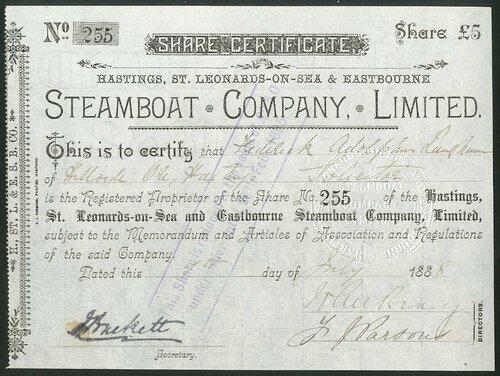 No. 255
SHARE CERTIFICATE.
Share £5
HASTINGS, ST. LEONARDS-ON-SEA & EASTBOURNE
STEAMBOAT • COMPANY, • LIMITED.
This is to certify that Adolphus
of Hillside
is the Registered Proprietor of the Share No. 255 of the Hastings,
St. Leonards-on-Sea and Eastbourne Steamboat Company, Limited,
subject to the Memorandum and Articles of Association and Regulations
of the said Company.
Dated this day of July 1888
F J Parsons
Secretary.
DIRECTORS.
H., ST. L. & E. S. B. CO.